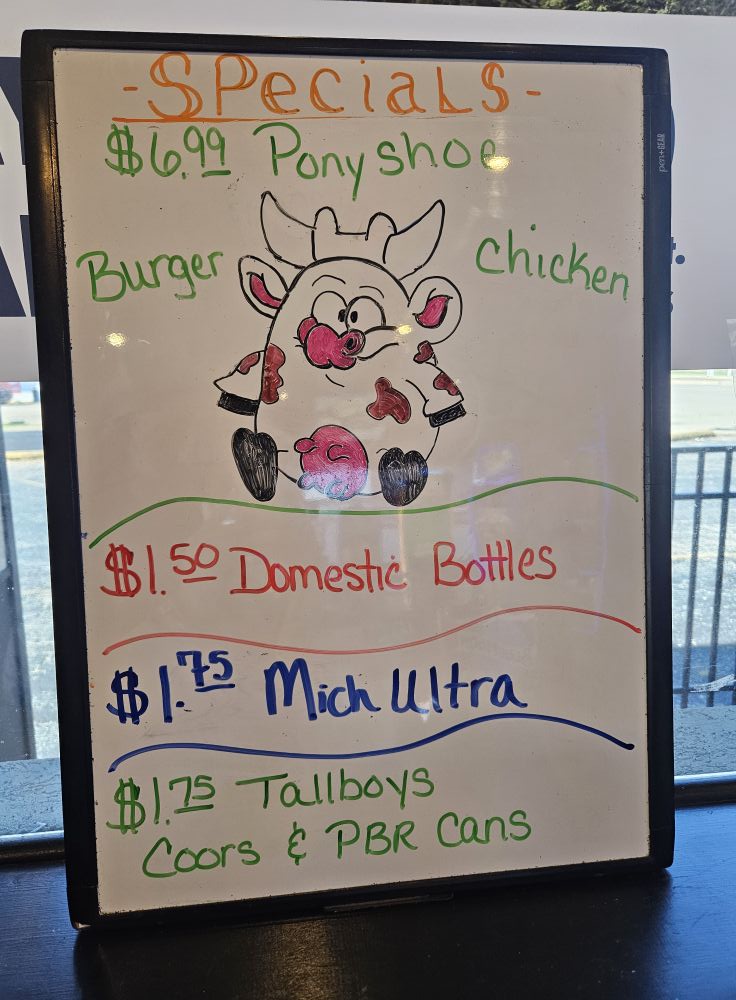 -SPecials-
$6.99 Ponyshoe
pen+GEAR
Burger
chicken
$1.50 Domestic Bottles
$1.75 Mich Ultra
$1.75 Tallboys
Coors & PBR cans